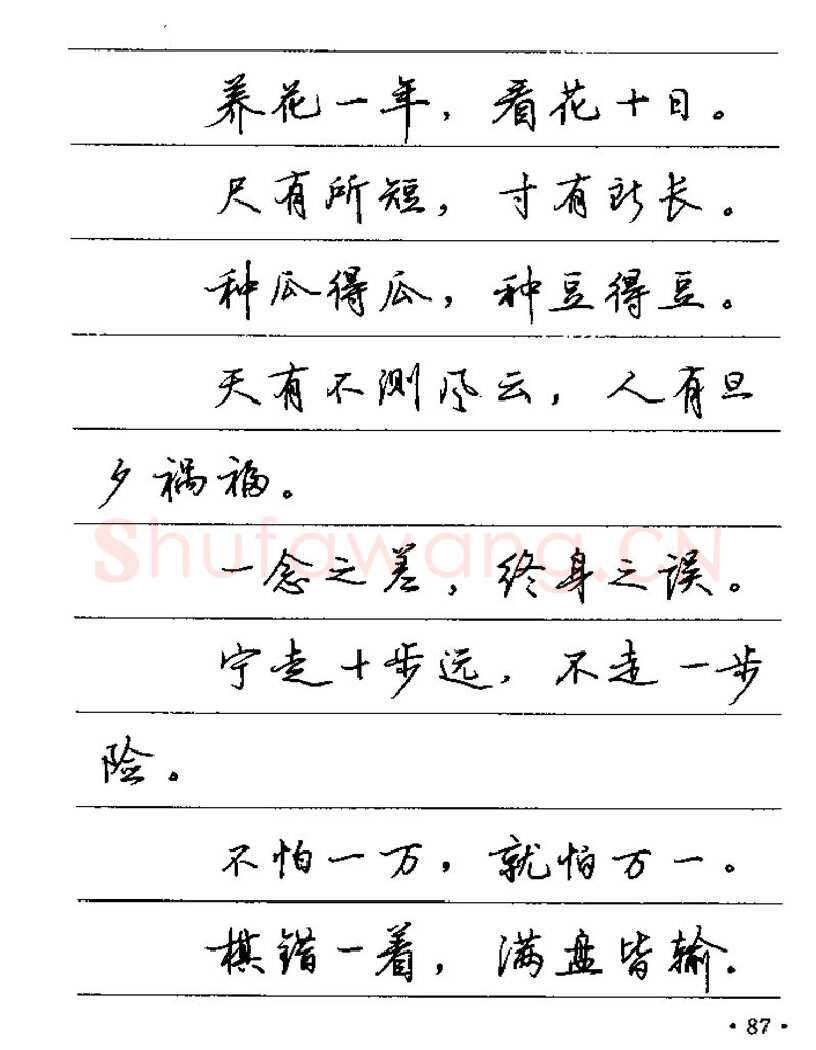 养花一年，看花十日。
尺有所短，寸有所长。
种瓜得瓜，种豆得豆。
天有不测风云，人有旦
夕祸福。
Shufawang.CN
一念之差，终身之误。
宁走十步远，不走一步
险。
不怕一万，就怕万一。
棋错一着，满盘皆输。
·87·